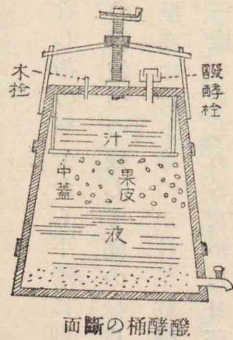 木栓
醱酵栓
汁
中蓋
果皮
液
面斷の桶酵醱